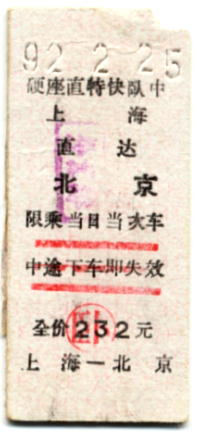 92 2 25
硬座直特快臥中
上 海
直 达
北 京
限乘当日当次车
中途下车即失效
全价232元
卧
上 海—北 京